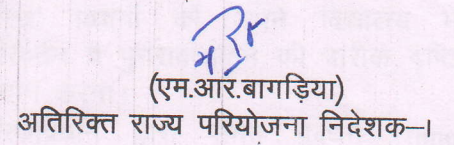 (एम.आर.बागड़िया)
अतिरिक्त राज्य परियोजना निदेशक–।